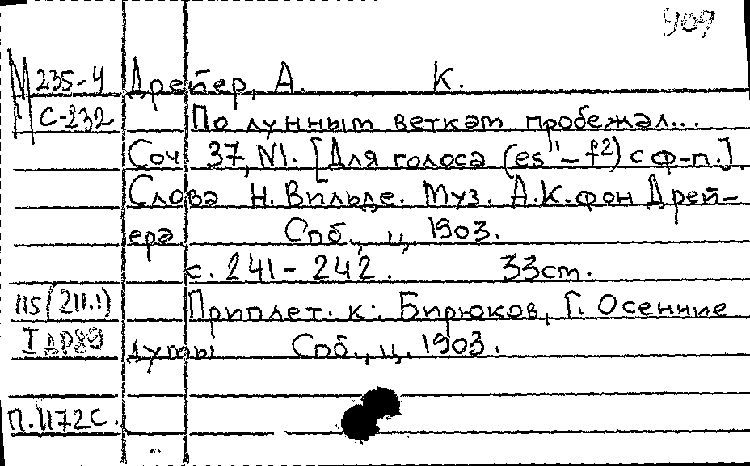 909
М 235-4 Дрейер, А. К.
С-232 По лунным веткам пробежал...
Соч 37, N1. [Для голоса (es' – f²) с ф-п.].
Слова Н. Вильде. Муз. А.К. фон Дрей-
ера Спб., ц, 1903.
с. 241 – 242. 33 cm.
115 (211.1) Приплет. к: Бирюков, Г. Осенние
думы Спб., ц. 1903.
П.1172С.